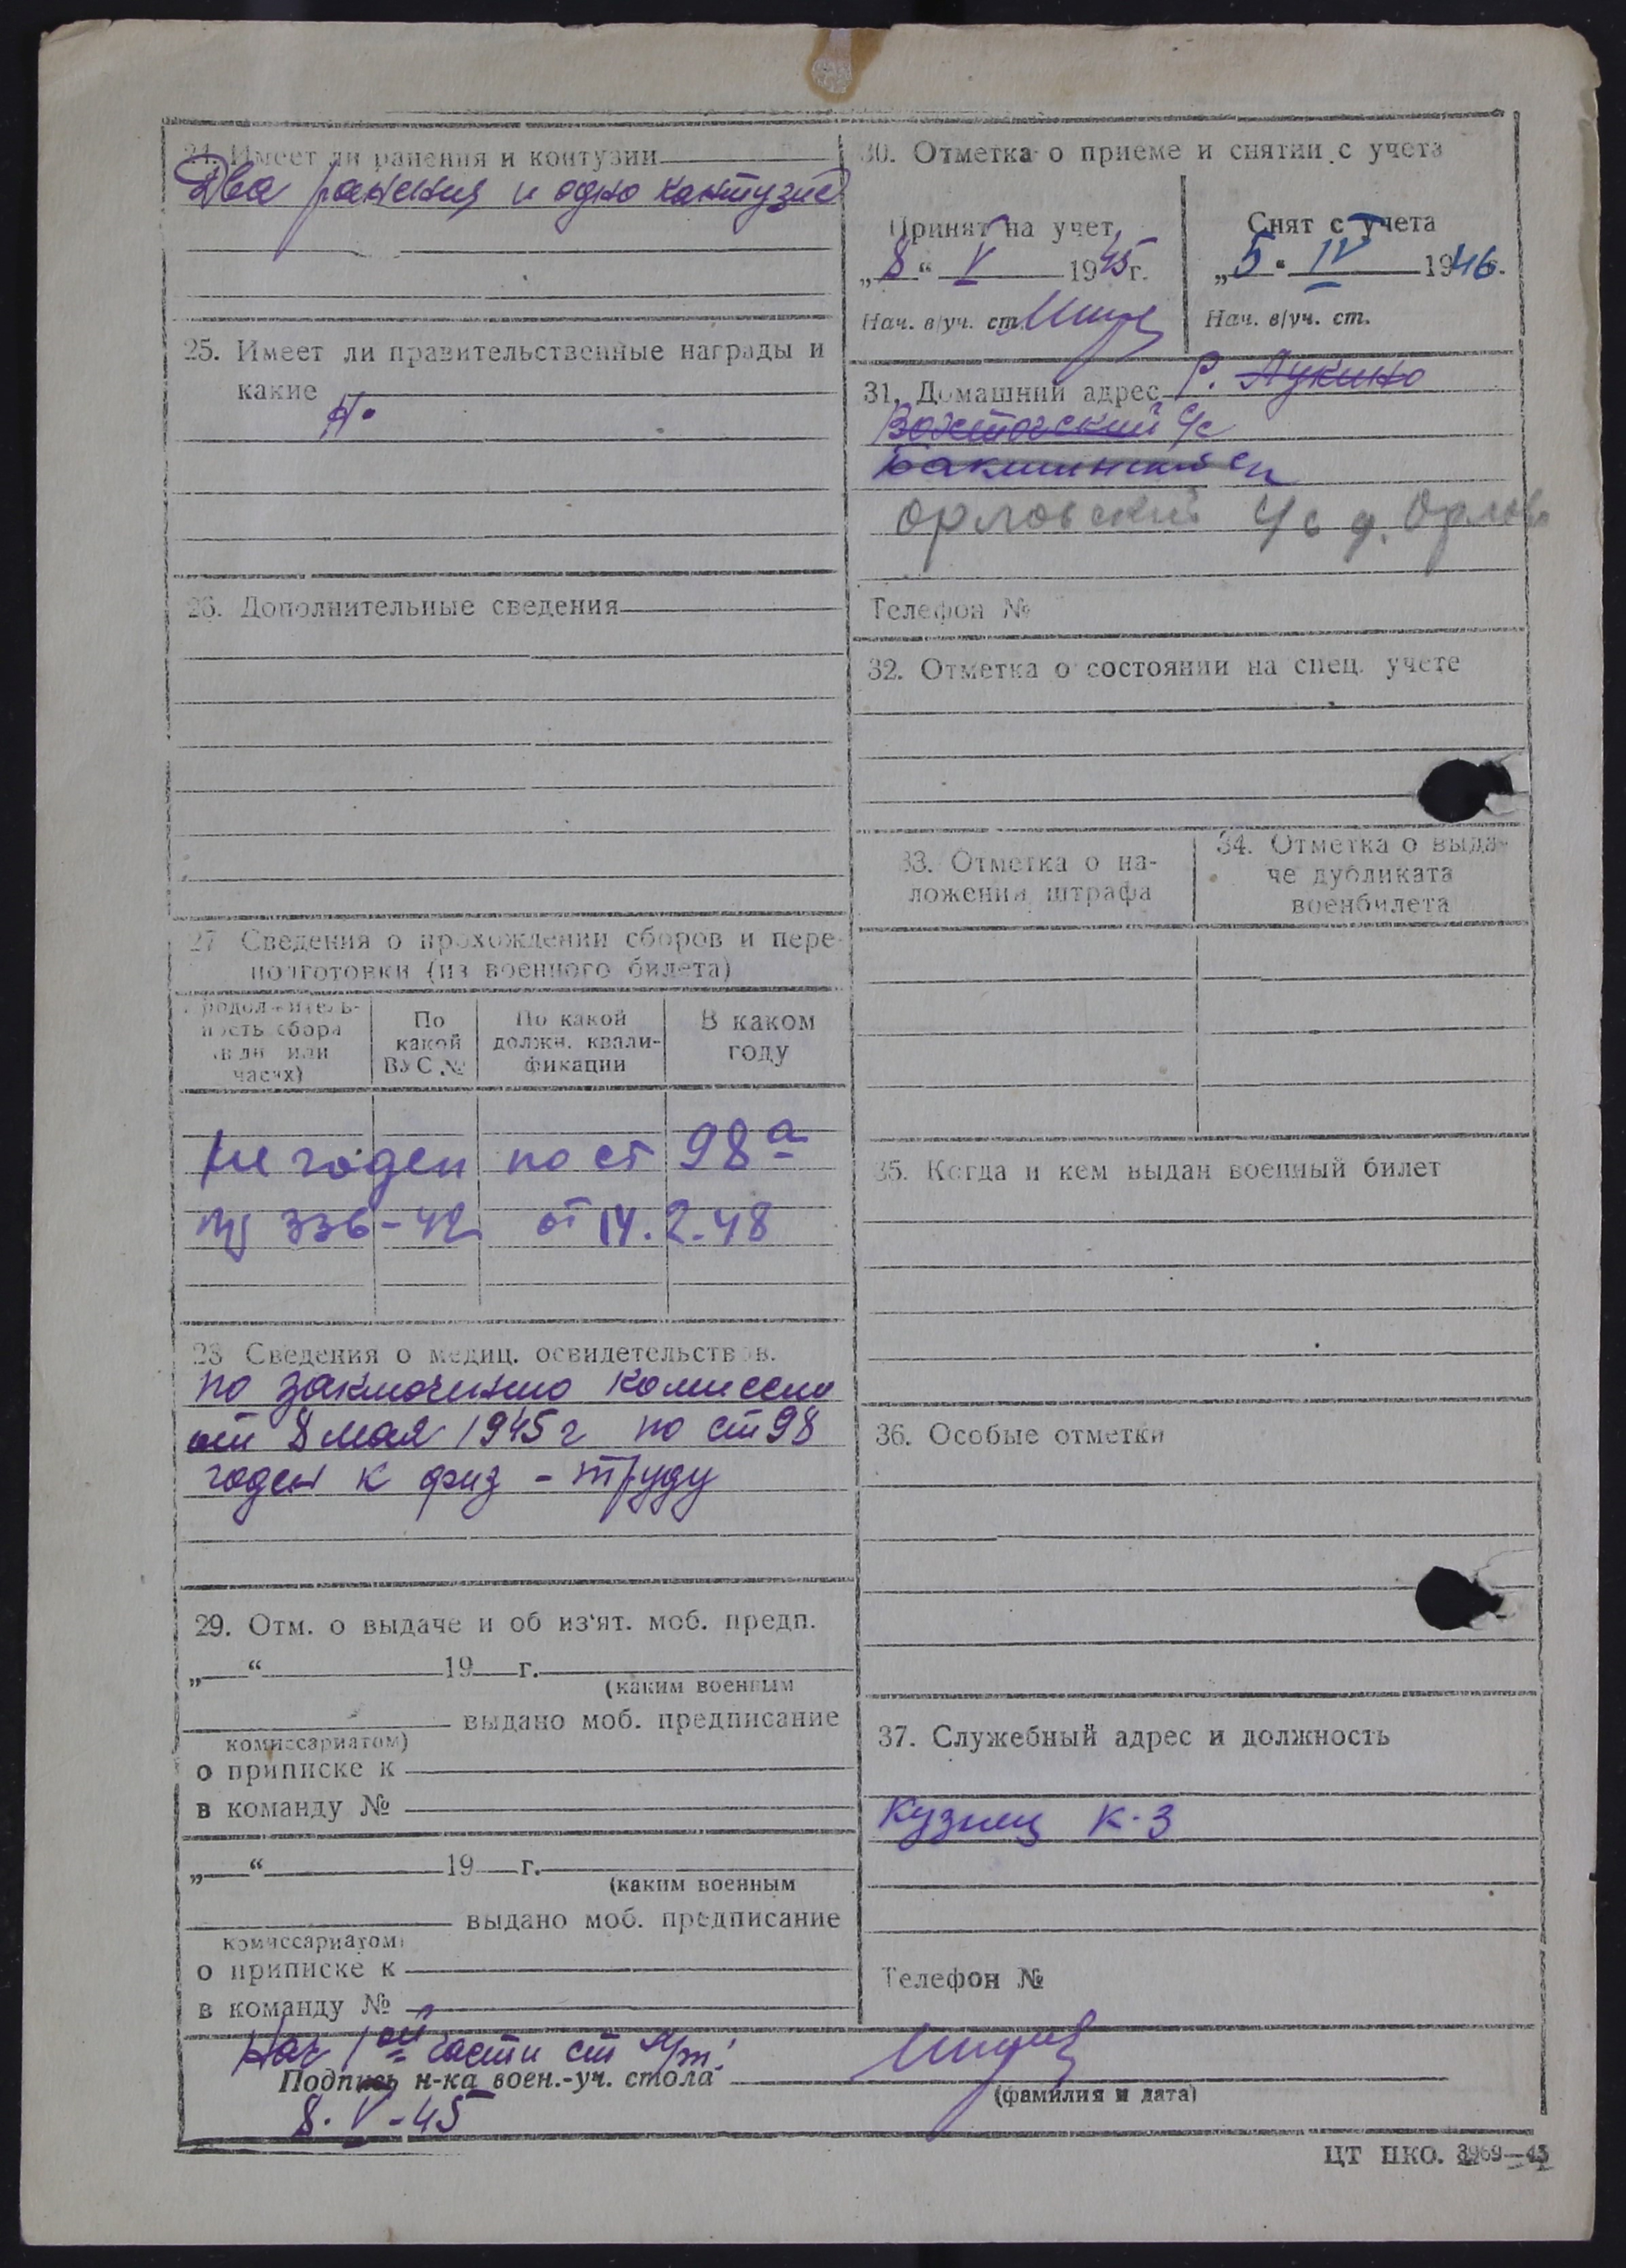 24. Имеет ли ранения и контузии
Два ранения и одно кантузие
25. Имеет ли правительственные награды и
какие
Н.
26. Дополнительные сведения
27 Сведения о прохождении сборов и пере-
подготовки (из военного билета)
Продолжитель-
ность сбора
(в дн. или
часах)
По
какой
ВУС №
По какой
должн. квали-
фикации
В каком
году
Не годен по ст 98а
пр 336-42 от 14.2.48
28 Сведения о медиц. освидетельствов.
по заключению комиссии
от 8 мая 1945 г по ст 98
годен к физ - труду
29. Отм. о выдаче и об из'ят. моб. предп.
„ “ 19 г.
(каким военным
выдано моб. предписание
комиссариатом)
о приписке к
в команду №
„ “ 19 г.
(каким военным
выдано моб. предписание
комиссариатом)
о приписке к
в команду №
30. Отметка о приеме и снятии с учета
Принят на учет
„8“ V 1945 г.
Нач. в/уч. ст.
Снят с учета
„5“ IV 1946 г.
Нач. в/уч. ст.
31. Домашний адрес Р. Лукино
с/с
Орловский с/с д. Орлово
Телефон №
32. Отметка о состоянии на спец. учете
33. Отметка о на-
ложении штрафа
34. Отметка о выда-
че дубликата
военбилета
35. Когда и кем выдан военный билет
36. Особые отметки
37. Служебный адрес и должность
Кузнец к-з
Телефон №
Нач 1ой части ст
Подпись н-ка воен.-уч. стола
(фамилия и дата)
8. V - 45
ЦТ НКО. 3969—43